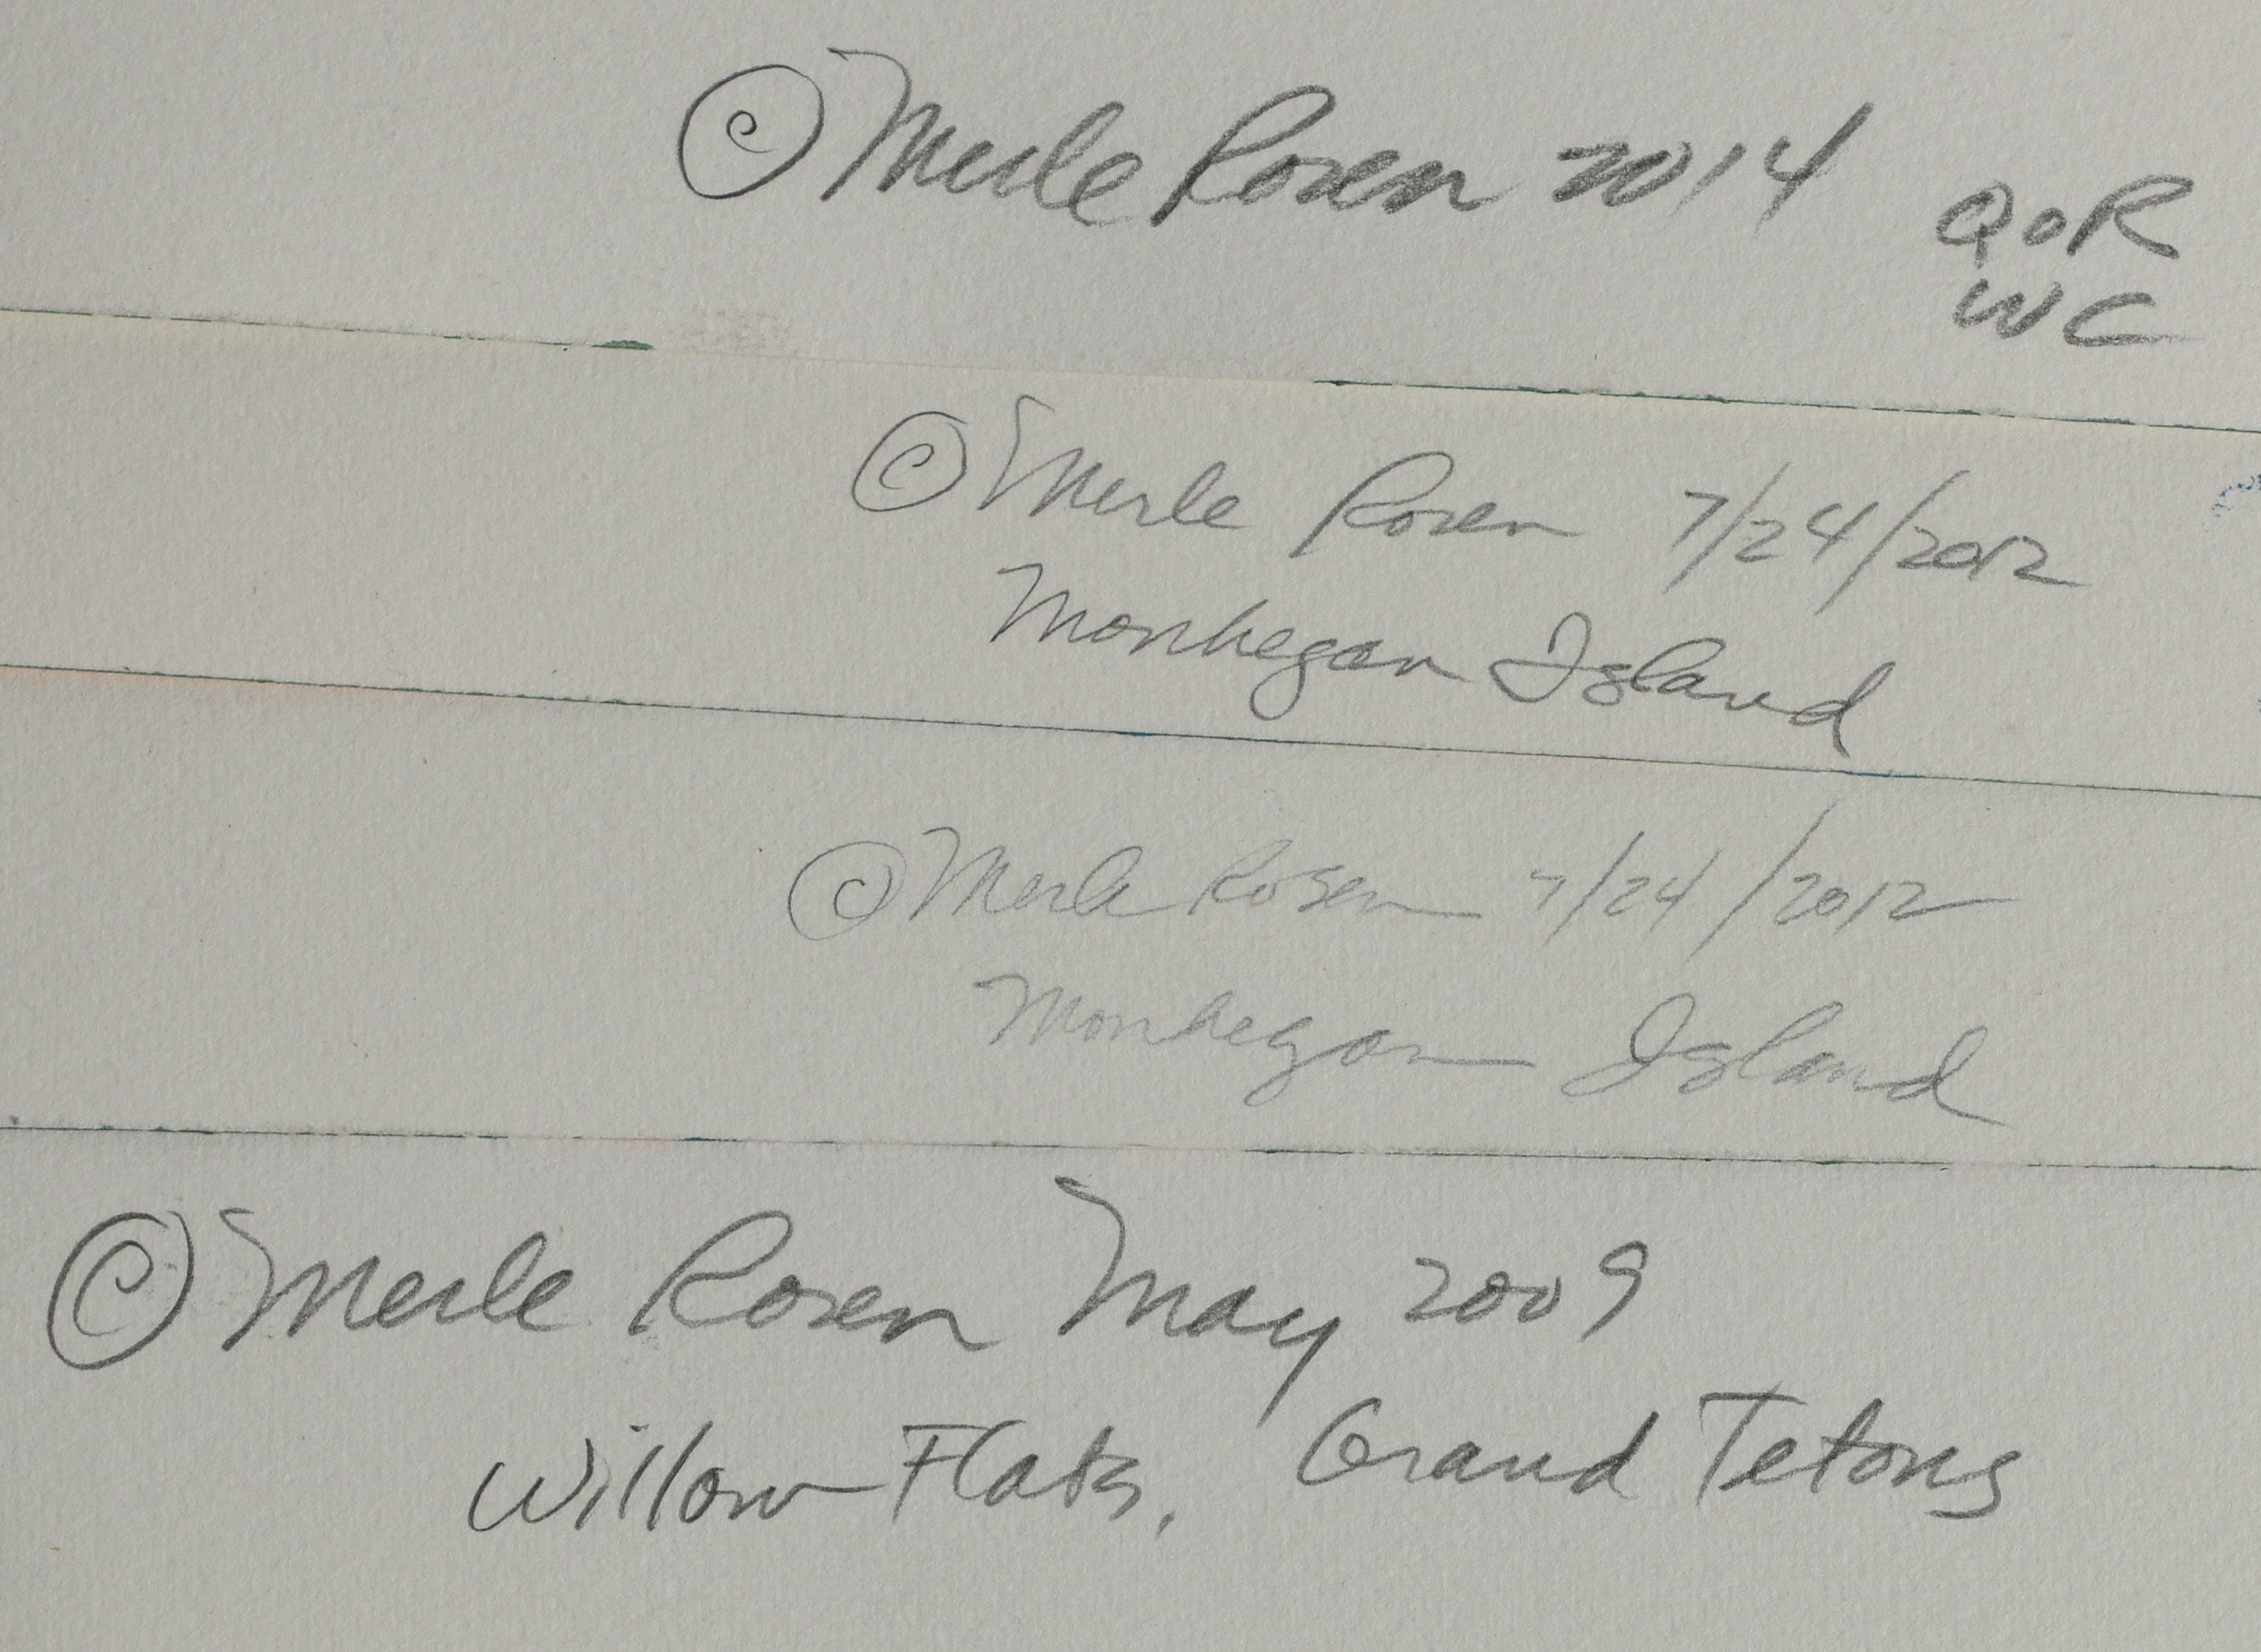 © Merle Rosen 2014
QoR
WC
© Merle Rosen 7/24/2012
Monhegan Island
© Merle Rosen 7/24/2012
Monhegan Island
© Merle Rosen May 2009
Willow Flats, Grand Tetons